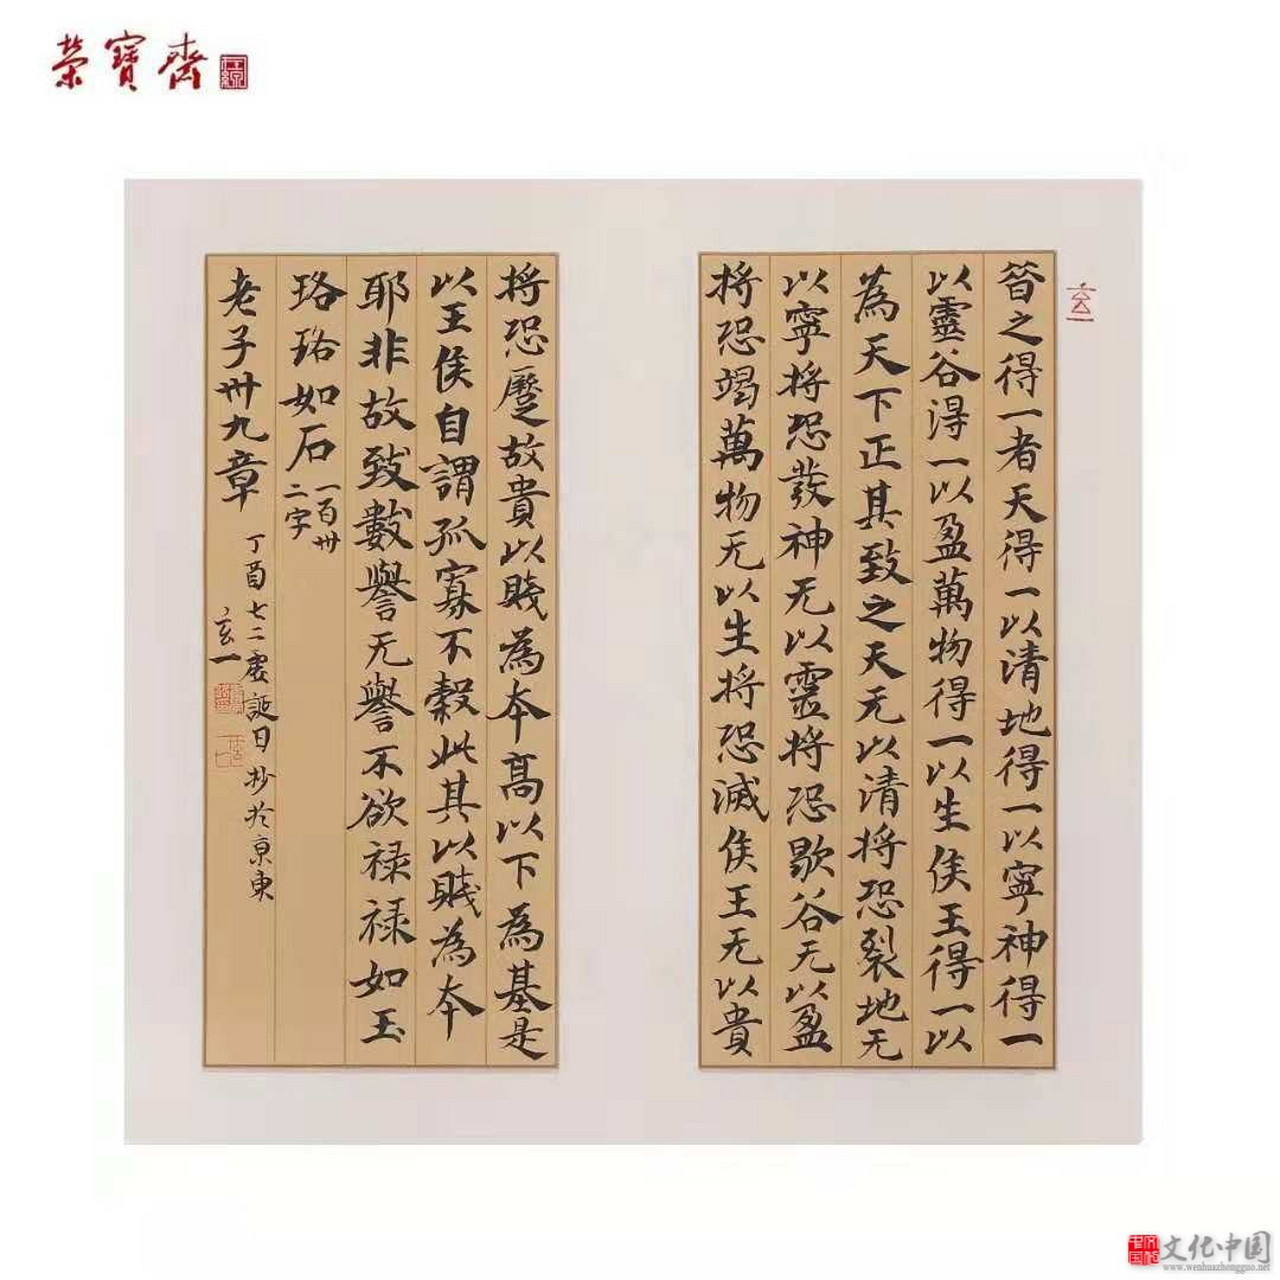 榮寶齋
玄一
昔之得一者天得一以清地得一以寧神得一
以靈谷得一以盈萬物得一以生侯王得一以
為天下正其致之天无以清將恐裂地无
以寧將恐發神无以靈將恐歇谷无以盈
將恐竭萬物无以生將恐滅侯王无以貴
將恐蹷故貴以賤為本高以下為基是
以王侯自謂孤寡不穀此其以賤為本
耶非故致數譽无譽不欲祿祿如玉
珞珞如石
一百卅
二字
老子卅九章
丁酉七二誕日抄於京東
玄一
文化中国
www.wenhuazhongguo.net